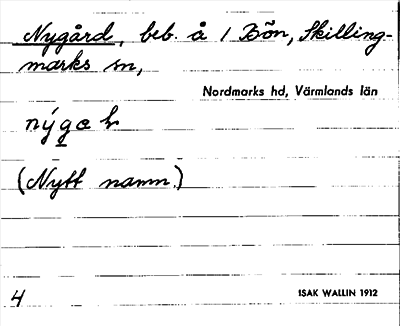 Nygård, beb. å 1 Bön, Skilling-
marks sn,
Nordmarks hd, Värmlands län
(Nytt namn.)
4
ISAK WALLIN 1912